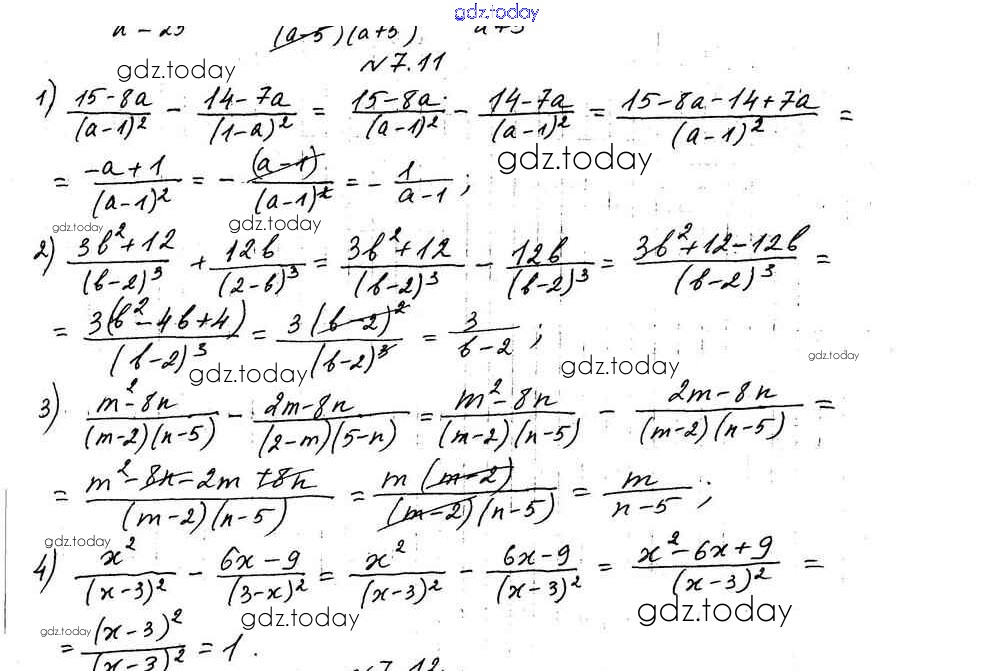 gdz.today
(a-5)(a+5)
gdz.today
№7.11
1) (15-8a)/(a-1)² - (14-7a)/(1-a)² = (15-8a)/(a-1)² - (14-7a)/(a-1)² = (15-8a-14+7a)/(a-1)² =
gdz.today
= (-a+1)/(a-1)² = - (a-1)/(a-1)² = - 1/(a-1);
gdz.today gdz.today
2) (3b²+12)/(b-2)³ + 12b/(2-b)³ = (3b²+12)/(b-2)³ - 12b/(b-2)³ = (3b²+12-12b)/(b-2)³ =
= 3(b²-4b+4)/(b-2)³ = 3(b-2)²/(b-2)³ = 3/(b-2);
gdz.today gdz.today gdz.today
3) (m²-8n)/((m-2)(n-5)) - (2m-8n)/((2-m)(5-n)) = (m²-8n)/((m-2)(n-5)) - (2m-8n)/((m-2)(n-5)) =
= (m²-8n-2m+8n)/((m-2)(n-5)) = m(m-2)/((m-2)(n-5)) = m/(n-5);
gdz.today
4) x²/(x-3)² - (6x-9)/(3-x)² = x²/(x-3)² - (6x-9)/(x-3)² = (x²-6x+9)/(x-3)² =
gdz.today gdz.today gdz.today
= (x-3)²/(x-3)² = 1.
№7.12.